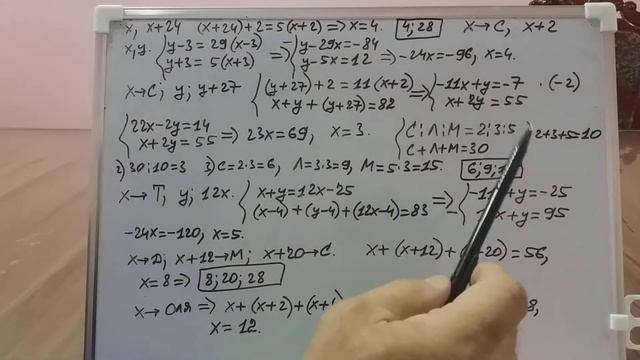 x, x+24 (x+24)+2=5(x+2)=>x=4. 4;28 x→C, x+2
x,y. {y-3=29(x-3) y+3=5(x+3) => -{y-29x=-84 y-5x=12 =>-24x=-96, x=4.
x→C; y; y+27 {(y+27)+2=11(x+2) x+y+(y+27)=82 => {-11x+y=-7 x+2y=55 ·(-2)
{22x-2y=14 x+2y=55 => 23x=69, x=3. {С:Л:М=2:3:5 С+Л+М=30 2+3+5=10
2) 30:10=3 3) С=2·3=6, Л=3·3=9, М=5·3=15. 6;9;
x→T, y; 12x. {x+y=12x-25 (x-4)+(y-4)+(12x-4)=83 => -{ +y=-25 x+y=95
-24x=-120, x=5.
x→Д; x+12→М; x+20→С. x+(x+12)+( +20)=56,
x=8=> 8;20;28
x→Оля=> x+(x+2)+(x+ 8,
x=12.